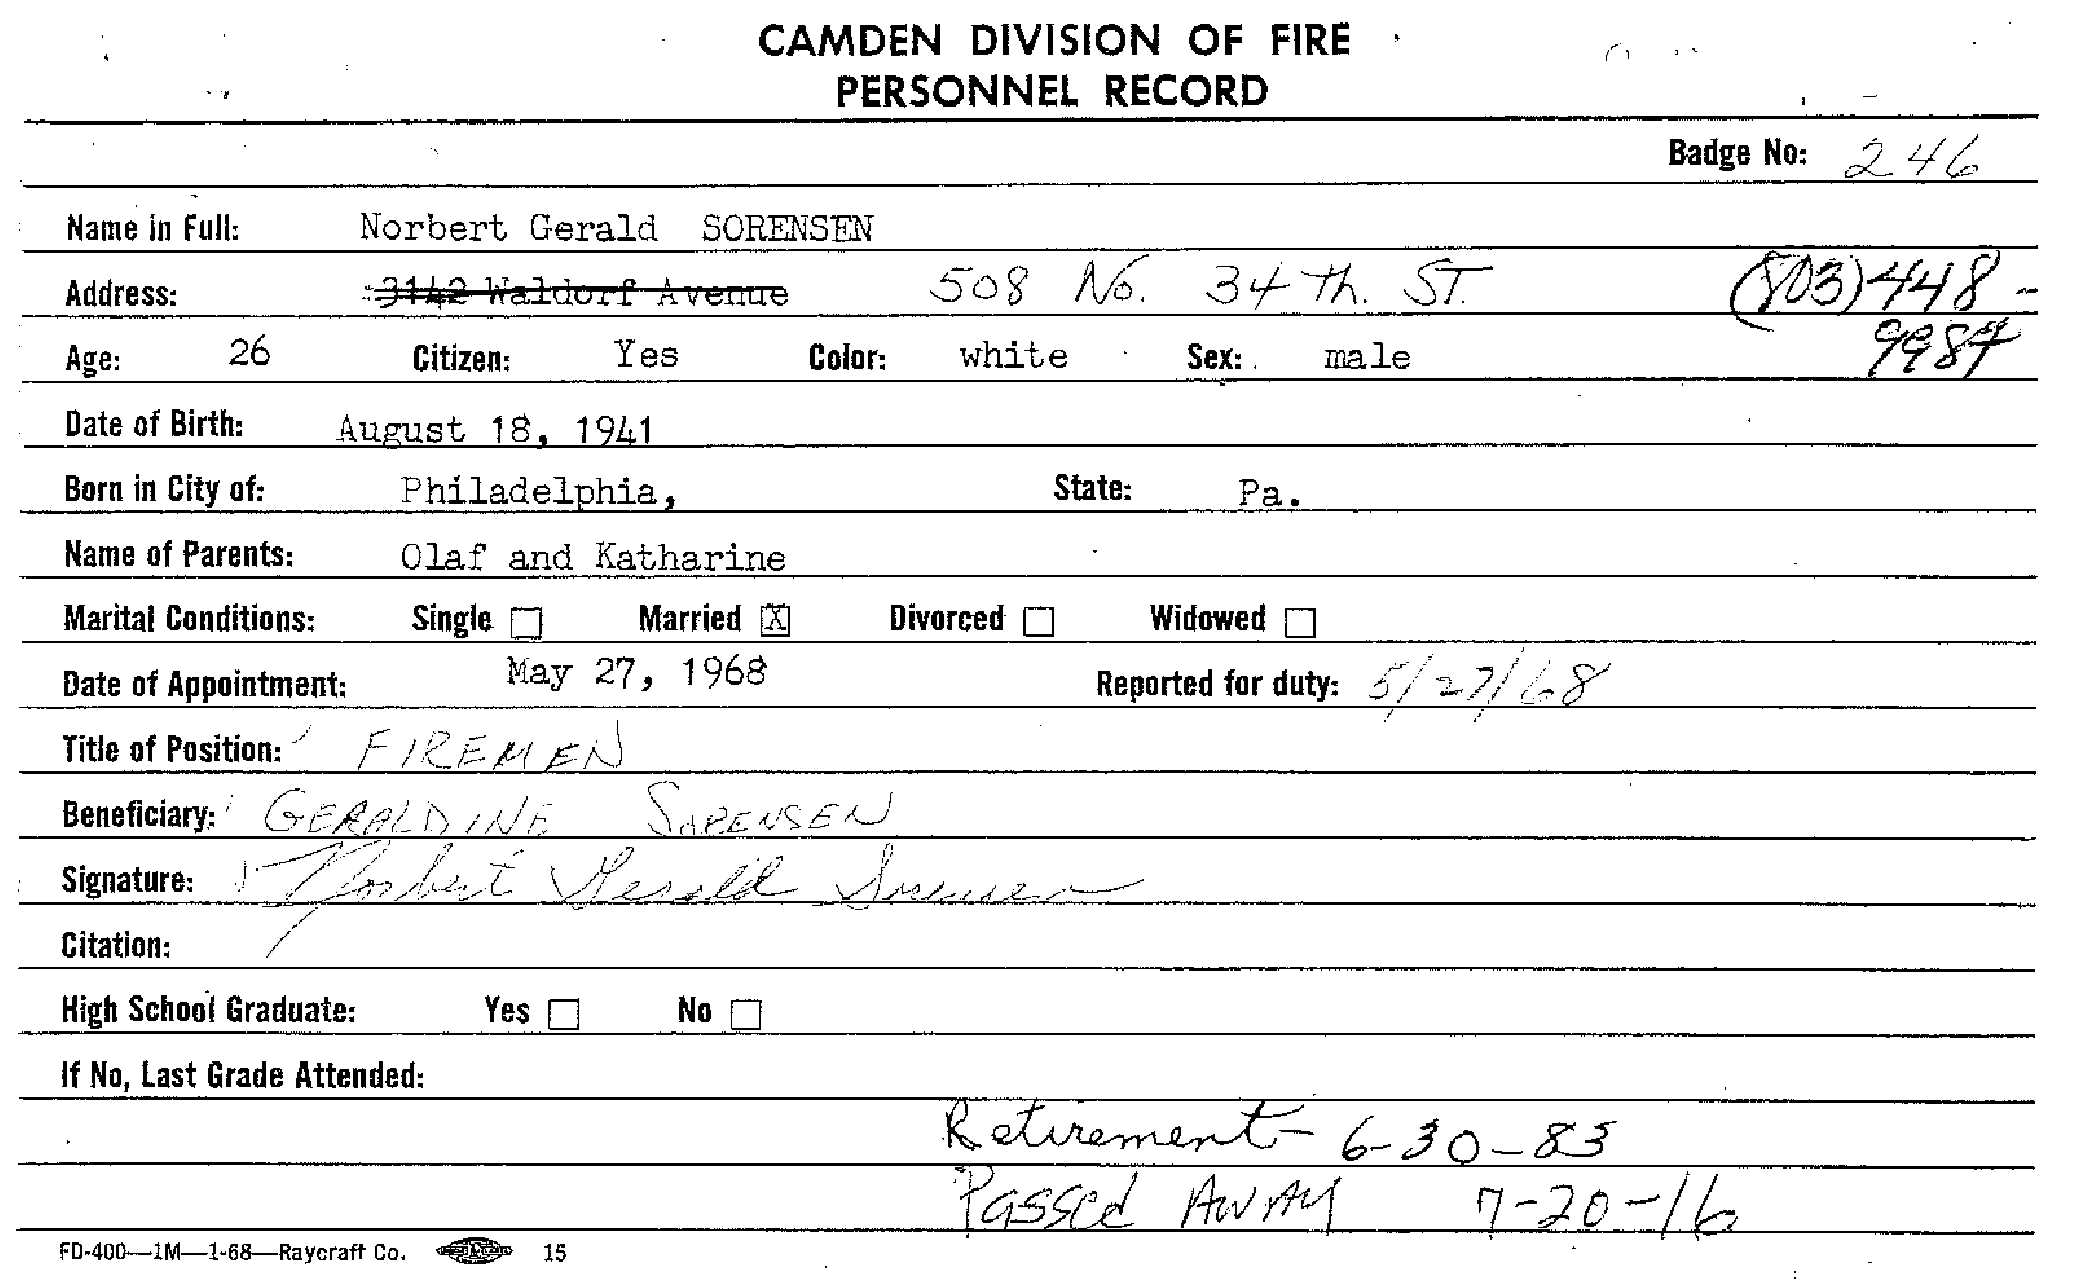 CAMDEN DIVISION OF FIRE
PERSONNEL RECORD
Badge No: 246
Name in Full: Norbert Gerald SORENSEN
Address: 3142 Waldorf Avenue 508 No. 34th. ST. (803)448-
9987
Age: 26 Citizen: Yes Color: white Sex: male
Date of Birth: August 18, 1941
Born in City of: Philadelphia, State: Pa.
Name of Parents: Olaf and Katharine
Marital Conditions: Single Married X Divorced Widowed
Date of Appointment: May 27, 1968 Reported for duty: 5/27/68
Title of Position: FIREMEN
Beneficiary: GERALDINE SORENSEN
Signature: Norbert Gerald Sorensen
Citation:
High School Graduate: Yes No
If No, Last Grade Attended:
Retirement - 6-30-83
Passed AWAY 7-20-16
FD-400—1M—1-68—Raycraft Co. 15